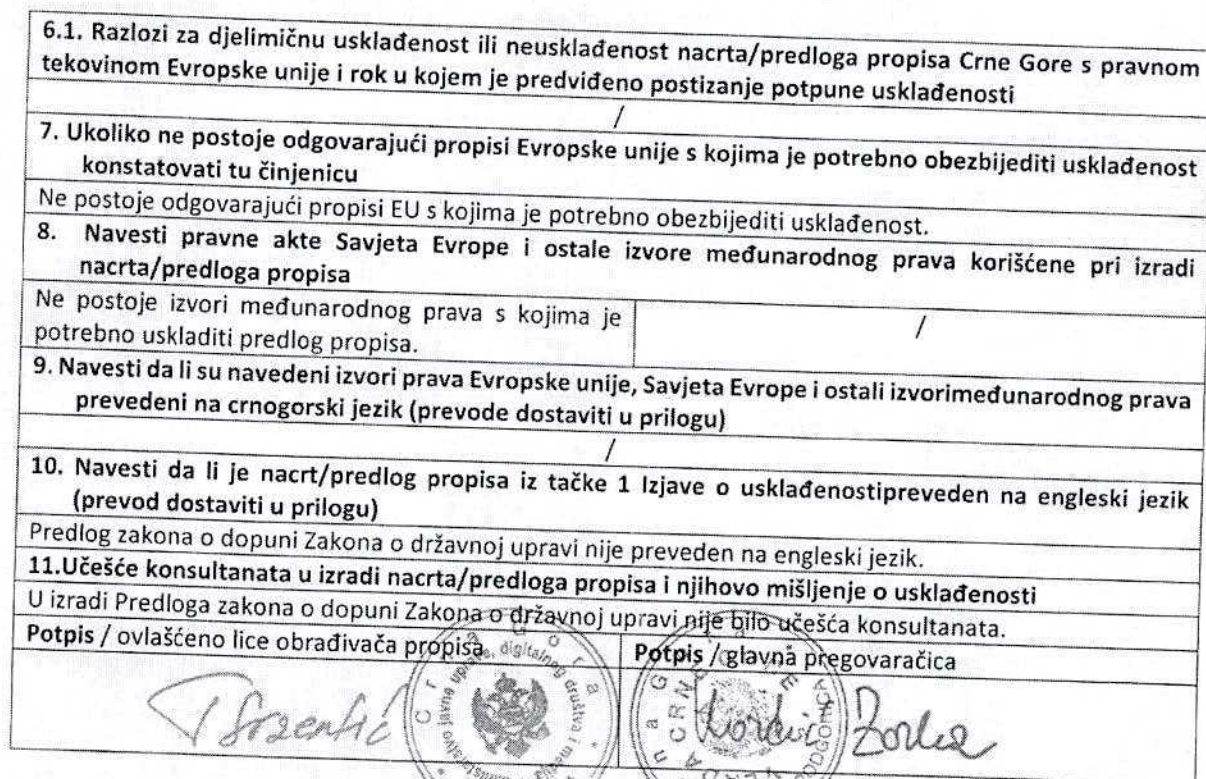 6.1. Razlozi za djelimičnu usklađenost ili neusklađenost nacrta/predloga propisa Crne Gore s pravnom
tekovinom Evropske unije i rok u kojem je predviđeno postizanje potpune usklađenosti
/
7. Ukoliko ne postoje odgovarajući propisi Evropske unije s kojima je potrebno obezbijediti usklađenost
konstatovati tu činjenicu
Ne postoje odgovarajući propisi EU s kojima je potrebno obezbijediti usklađenost.
8. Navesti pravne akte Savjeta Evrope i ostale izvore međunarodnog prava korišćene pri izradi
nacrta/predloga propisa
Ne postoje izvori međunarodnog prava s kojima je
potrebno uskladiti predlog propisa.
/
9. Navesti da li su navedeni izvori prava Evropske unije, Savjeta Evrope i ostali izvorimeđunarodnog prava
prevedeni na crnogorski jezik (prevode dostaviti u prilogu)
/
10. Navesti da li je nacrt/predlog propisa iz tačke 1 Izjave o usklađenostipreveden na engleski jezik
(prevod dostaviti u prilogu)
Predlog zakona o dopuni Zakona o državnoj upravi nije preveden na engleski jezik.
11.Učešće konsultanata u izradi nacrta/predloga propisa i njihovo mišljenje o usklađenosti
U izradi Predloga zakona o dopuni Zakona o državnoj upravi nije bilo učešća konsultanata.
Potpis / ovlašćeno lice obrađivača propisa
Potpis / glavna pregovaračica